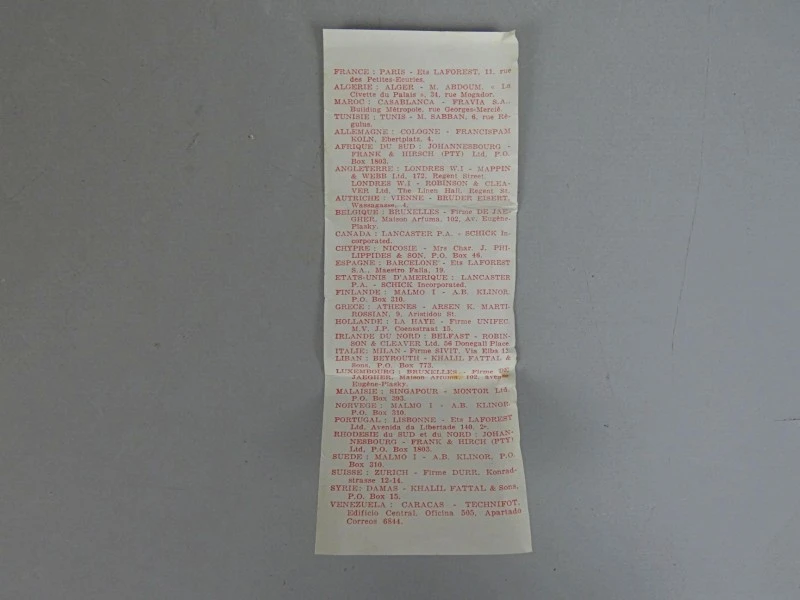 FRANCE : PARIS - Ets LAFOREST, 11, rue
des Petites-Ecuries.
ALGERIE : ALGER - M. ABDOUM, « La
Civette du Palais », 34, rue Mogador.
MAROC : CASABLANCA - FRAVIA S.A.,
Building Métropole, rue Georges-Mercié.
TUNISIE : TUNIS - M. SABBAN, 6, rue Ré-
gulus.
ALLEMAGNE : COLOGNE - FRANCISPAM
KOLN, Ebertplatz, 4.
AFRIQUE DU SUD : JOHANNESBOURG -
FRANK & HIRSCH (PTY) Ltd, P.O.
Box 1803.
ANGLETERRE : LONDRES W.I - MAPPIN
& WEBB Ltd, 172, Regent Street.
LONDRES W.I - ROBINSON & CLEA-
VER Ltd, The Linen Hall, Regent St.
AUTRICHE : VIENNE - BRUDER EISERT,
Wassagasse, 4.
BELGIQUE : BRUXELLES - Firme DE JAE-
GHER, Maison Arfuma, 102, Av. Eugène-
Plasky.
CANADA : LANCASTER P.A. - SCHICK In-
corporated.
CHYPRE : NICOSIE - Mrs Char. J. PHI-
LIPPIDES & SON, P.O. Box 46.
ESPAGNE : BARCELONE - Ets LAFOREST
S.A., Maestro Falla, 19.
ETATS-UNIS D'AMERIQUE : LANCASTER
P.A. - SCHICK Incorporated.
FINLANDE : MALMO I - A.B. KLINOR,
P.O. Box 310.
GRECE : ATHENES - ARSEN K. MARTI-
ROSSIAN, 9, Aristidou St.
HOLLANDE : LA HAYE - Firme UNIPEC,
M.V. J.P. Coenstraat 15.
IRLANDE DU NORD : BELFAST - ROBIN-
SON & CLEAVER Ltd, 56 Donegall Place
ITALIE : MILAN - Firme SIVIT, Via Elba 12.
LIBAN : BEYROUTH - KHALIL FATTAL &
Sons, P.O. Box 773.
LUXEMBOURG : BRUXELLES - Firme DE
JAEGHER, Maison Arfuma, 102, avenue
Eugène-Plasky.
MALAISIE : SINGAPOUR - MONTOR Ltd,
P.O. Box 393.
NORVEGE : MALMO I - A.B. KLINOR,
P.O. Box 310.
PORTUGAL : LISBONNE - Ets LAFOREST
Ltd, Avenida da Libertade 140, 2º.
RHODESIE du SUD et du NORD : JOHAN-
NESBOURG - FRANK & HIRCH (PTY)
Ltd, P.O. Box 1803.
SUEDE : MALMO I - A.B. KLINOR, P.O.
Box 310.
SUISSE : ZURICH - Firme DURR, Konrad-
strasse 12-14.
SYRIE : DAMAS - KHALIL FATTAL & Sons,
P.O. Box 15.
VENEZUELA : CARACAS - TECHNIFOT,
Edificio Central, Oficina 505, Apartado
Correos 6844.